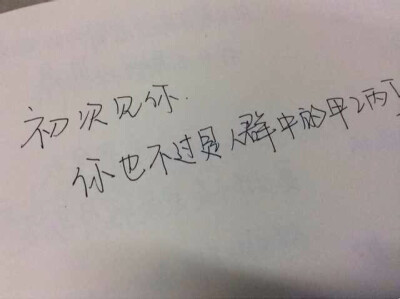 初次见你.
你也不过是人群中的甲乙丙丁